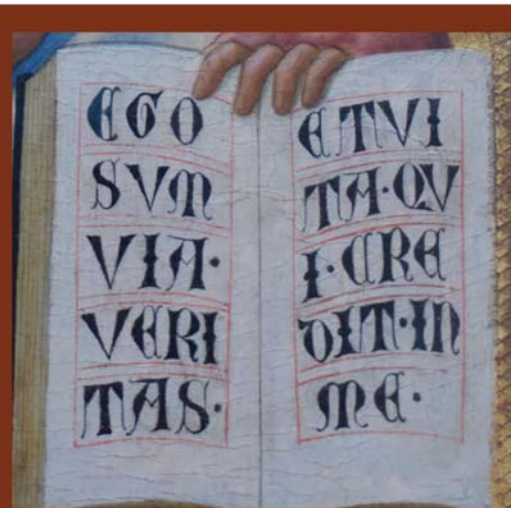 EGO
SVM
VIA·
VERI
TAS·
ETVI
TA·QV
I·CRE
DIT·IN
ME·